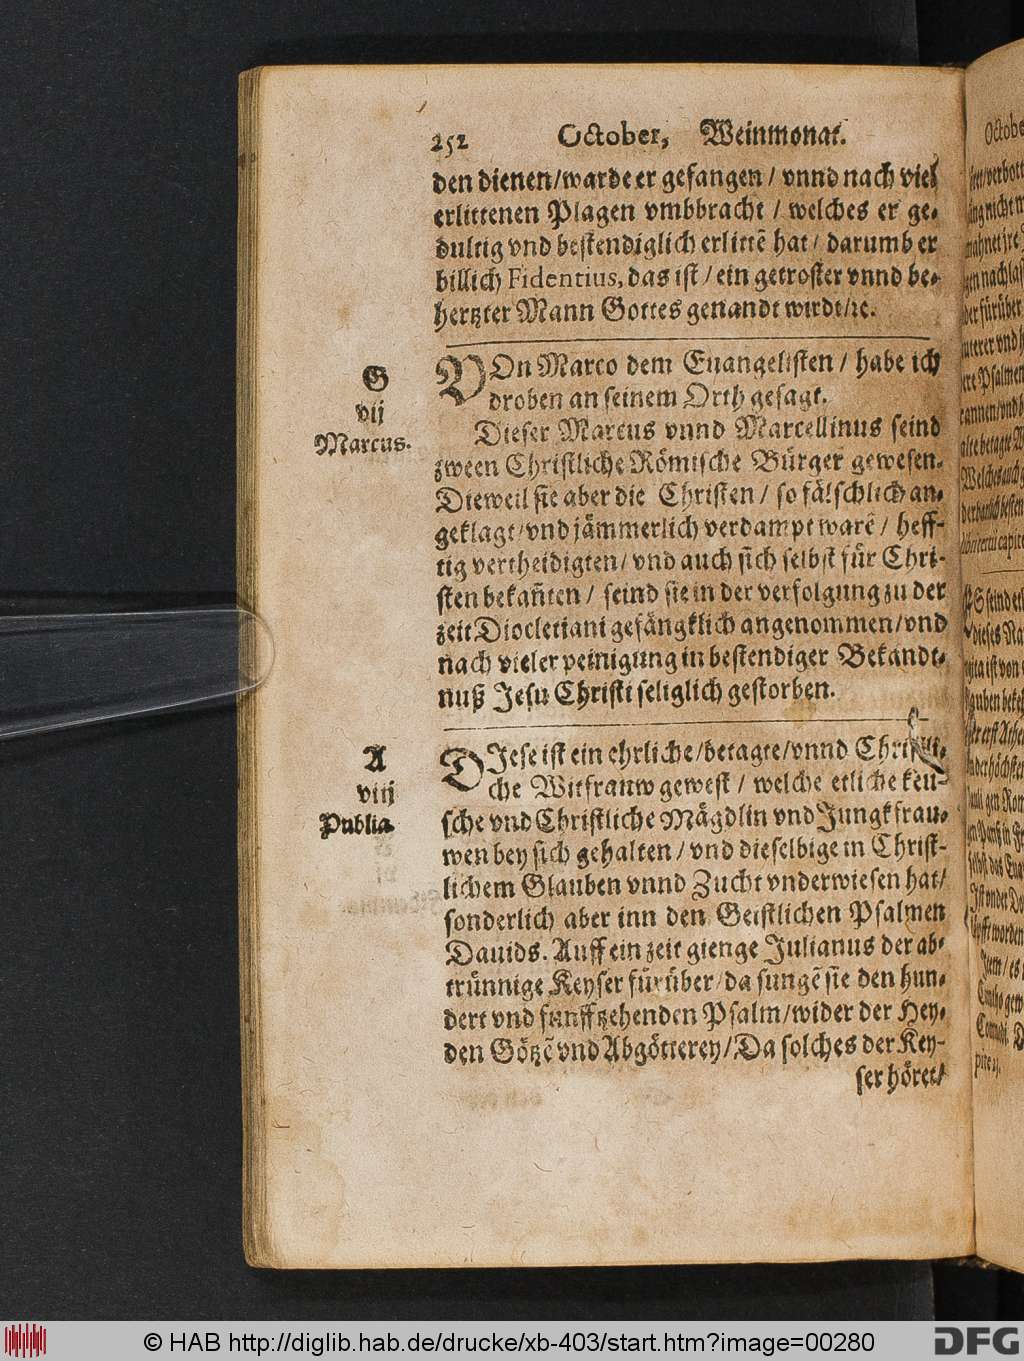 252 October, Weinmonat.
den dienen/warde er gefangen / vnnd nach viel
erlittenen Plagen vmbbracht / welches er ge-
dultig vnd bestendiglich erlittē hat / darumb er
billich Fidentius, das ist / ein getroster vnnd be-
hertzter Mann Gottes genandt wirdt/ꝛc.
G
vij
Marcus.
VOn Marco dem Euangelisten / habe ich
droben an seinem Orth gesagt.
Dieser Marcus vnnd Marcellinus seind
zween Christliche Römische Bürger gewesen.
Dieweil sie aber die Christen / so fälschlich an-
geklagt/vnd jämmerlich verdampt warē / heff-
tig vertheidigten/ vnd auch sich selbst für Chri-
sten bekañten / seind sie in der verfolgung zu der
zeit Diocletiani gefängklich angenommen/vnd
nach vieler peinigung in bestendiger Bekandt-
nuß Jesu Christi seliglich gestorben.
A
viij
Publia.
DIese ist ein ehrliche/betagte/vnnd Christli-
che Witfrauw gewest / welche etliche keu-
sche vnd Christliche Mägdlin vnd Jungkfrau-
wen bey sich gehalten / vnd dieselbige in Christ-
lichem Glauben vnnd Zucht vnderwiesen hat/
sonderlich aber inn den Geistlichen Psalmen
Dauids. Auff ein zeit gienge Julianus der ab-
trünnige Keyser fürüber/da sungē sie den hun-
dert vnd funfftzehenden Psalm/wider der Hey-
den Götzē vnd Abgötterey/Da solches der Key-
ser höret/
© HAB http://diglib.hab.de/drucke/xb-403/start.htm?image=00280
DFG